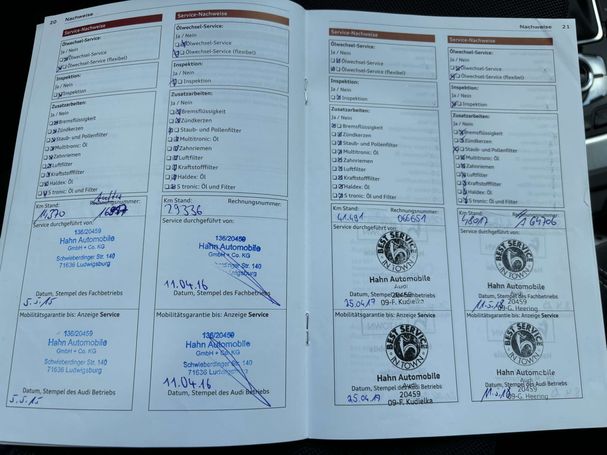 20 Nachweise
Service-Nachweise
Ölwechsel-Service:
Ja / Nein
Ölwechsel-Service
Ölwechsel-Service (flexibel)
Inspektion:
Ja / Nein
Inspektion
Zusatzarbeiten:
Ja / Nein
Bremsflüssigkeit
Zündkerzen
Staub- und Pollenfilter
Multitronic: Öl
Zahnriemen
Luftfilter
Kraftstofffilter
Haldex: Öl
S tronic: Öl und Filter
Km Stand:
14370
Service durchgeführt von:
136/20459
Hahn Automobile
GmbH + Co. KG
Schwieberdinger Str. 140
71636 Ludwigsburg
5.5.15
Datum, Stempel des Fachbetriebs
Mobilitätsgarantie bis: Anzeige Service
136/20459
Hahn Automobile
GmbH + Co. KG
Schwieberdinger Str. 140
71636 Ludwigsburg
5.5.15
Datum, Stempel des Audi Betriebs
Service-Nachweise
Ölwechsel-Service:
Ja / Nein
Ölwechsel-Service
Ölwechsel-Service (flexibel)
Inspektion:
Ja / Nein
Inspektion
Zusatzarbeiten:
Ja / Nein
Bremsflüssigkeit
Zündkerzen
Staub- und Pollenfilter
Multitronic: Öl
Zahnriemen
Luftfilter
Kraftstofffilter
Haldex: Öl
S tronic: Öl und Filter
Km Stand: Rechnungsnummer:
29336
Service durchgeführt von:
136/20459
Hahn Automobile
GmbH + Co. KG
Schwieberdinger Str. 140
71636 Ludwigsburg
11.04.16
Datum, Stempel des Fachbetriebs
Mobilitätsgarantie bis: Anzeige Service
136/20459
Hahn Automobile
GmbH + Co. KG
Schwieberdinger Str. 140
71636 Ludwigsburg
11.04.16
Datum, Stempel des Audi Betriebs
Nachweise 21
Service-Nachweise
Ölwechsel-Service:
Ja / Nein
Ölwechsel-Service
Ölwechsel-Service (flexibel)
Inspektion:
Ja / Nein
Inspektion
Zusatzarbeiten:
Ja / Nein
Bremsflüssigkeit
Zündkerzen
Staub- und Pollenfilter
Multitronic: Öl
Zahnriemen
Luftfilter
Kraftstofffilter
Haldex: Öl
S tronic: Öl und Filter
Km Stand: Rechnungsnummer:
41.491 066651
Service durchgeführt von:
BEST SERVICE
IN TOWN
Hahn Automobile
Audi
20459
25.04.17 09-F. Kudielka
Datum, Stempel des Fachbetriebs
Mobilitätsgarantie bis: Anzeige Service
BEST SERVICE
IN TOWN
Hahn Automobile
Audi
Datum, Stempel des Audi Betriebs
20459
25.04.17 09-F. Kudielka
Service-Nachweise
Ölwechsel-Service:
Ja / Nein
Ölwechsel-Service
Ölwechsel-Service (flexibel)
Inspektion:
Ja / Nein
Inspektion
Zusatzarbeiten:
Ja / Nein
Bremsflüssigkeit
Zündkerzen
Staub- und Pollenfilter
Multitronic: Öl
Zahnriemen
Luftfilter
Kraftstofffilter
Haldex: Öl
S tronic: Öl und Filter
Km Stand:
Service durchgeführt von:
BEST SERVICE
IN TOWN
Hahn Automobile
Audi
20459
11.5.18 09-G. Heering
Datum, Stempel des Fachbetriebs
Mobilitätsgarantie bis: Anzeige Service
BEST SERVICE
IN TOWN
Hahn Automobile
Audi
Datum, Stempel des Audi Betriebs
20459
11.5.18 09-G. Heering